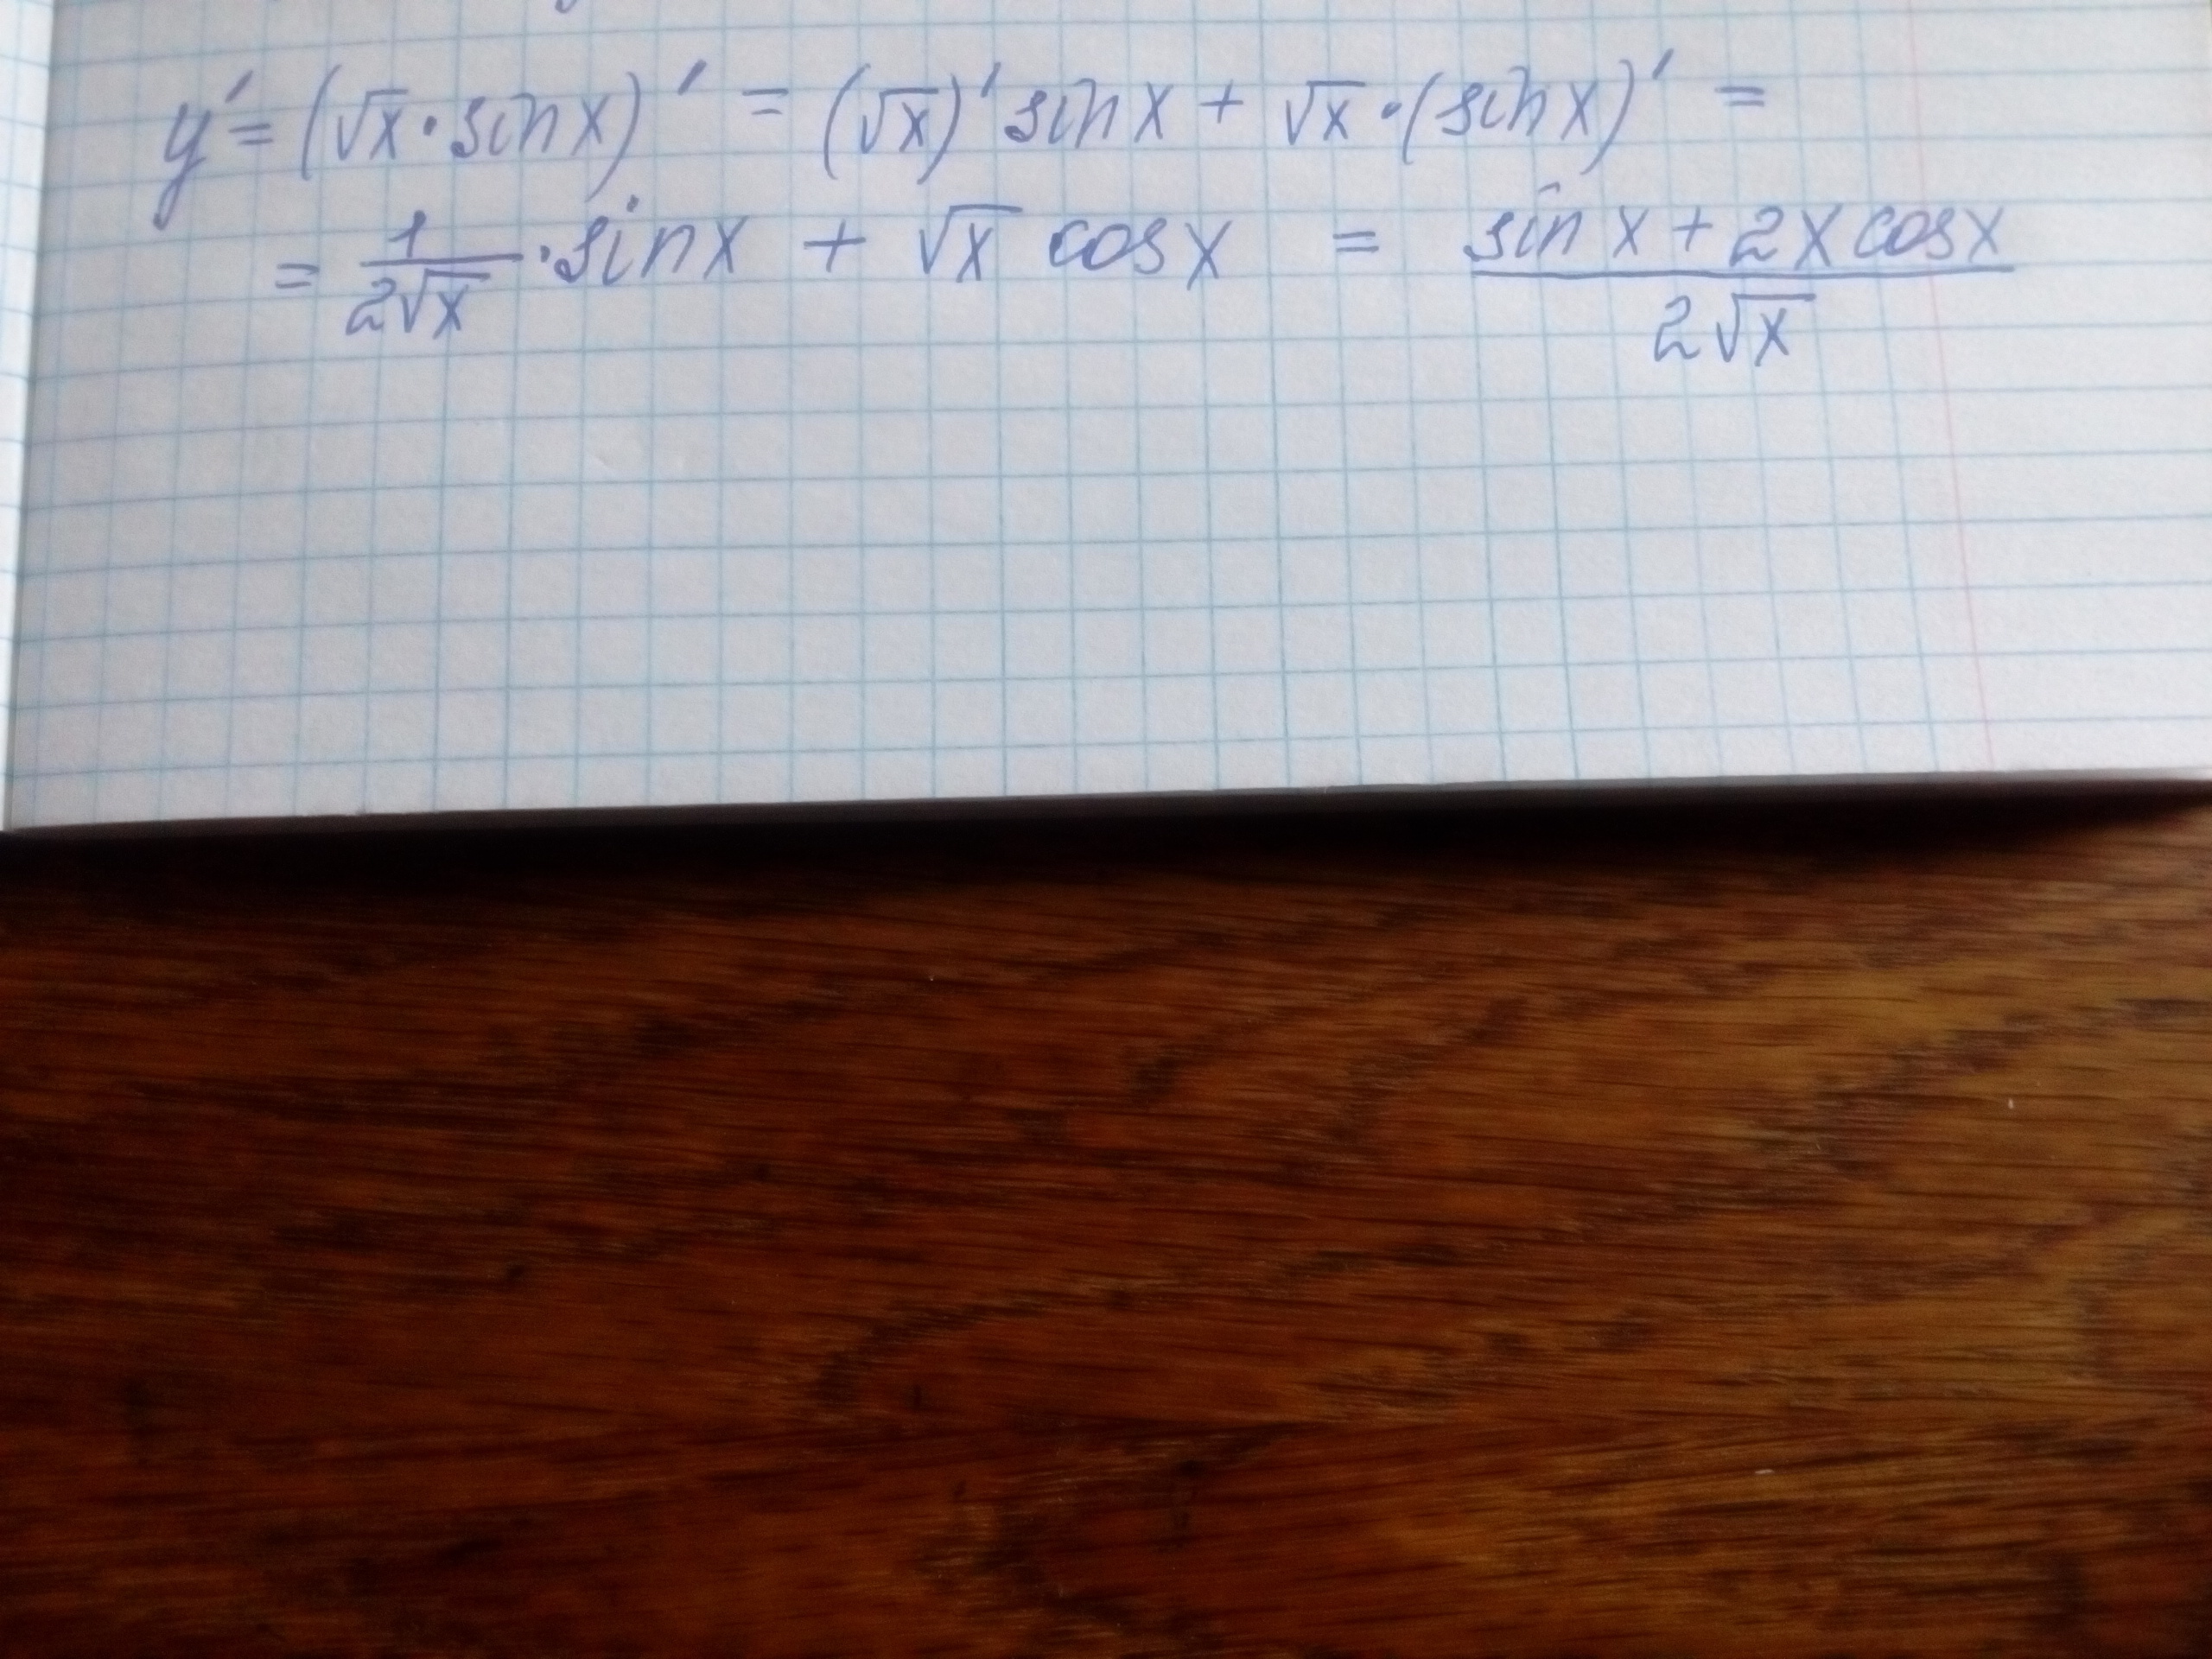 y' = (√x · sin x)' = (√x)' sin x + √x · (sin x)' =
= 1/(2√x) · sin x + √x cos x = (sin x + 2x cos x)/(2√x)